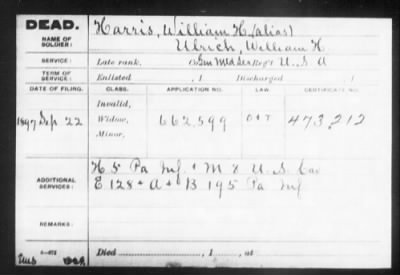 DEAD.
NAME OF SOLDIER: Harris, William H. (alias)
Ulrich, William H
SERVICE: Late rank, Gen Md Ser Reg't U. S. A
TERM OF SERVICE: Enlisted , 1 Discharged , 1
DATE OF FILING. CLASS. APPLICATION NO. LAW. CERTIFICATE NO.
Invalid,
1897 Sep 22 Widow, 662,599 O&T 473,212
Minor,
ADDITIONAL SERVICES: H 5 Pa Inf. & M & U. S. Cav
E 128 & A & B 195 Pa Inf
REMARKS:
Died , 1 , at